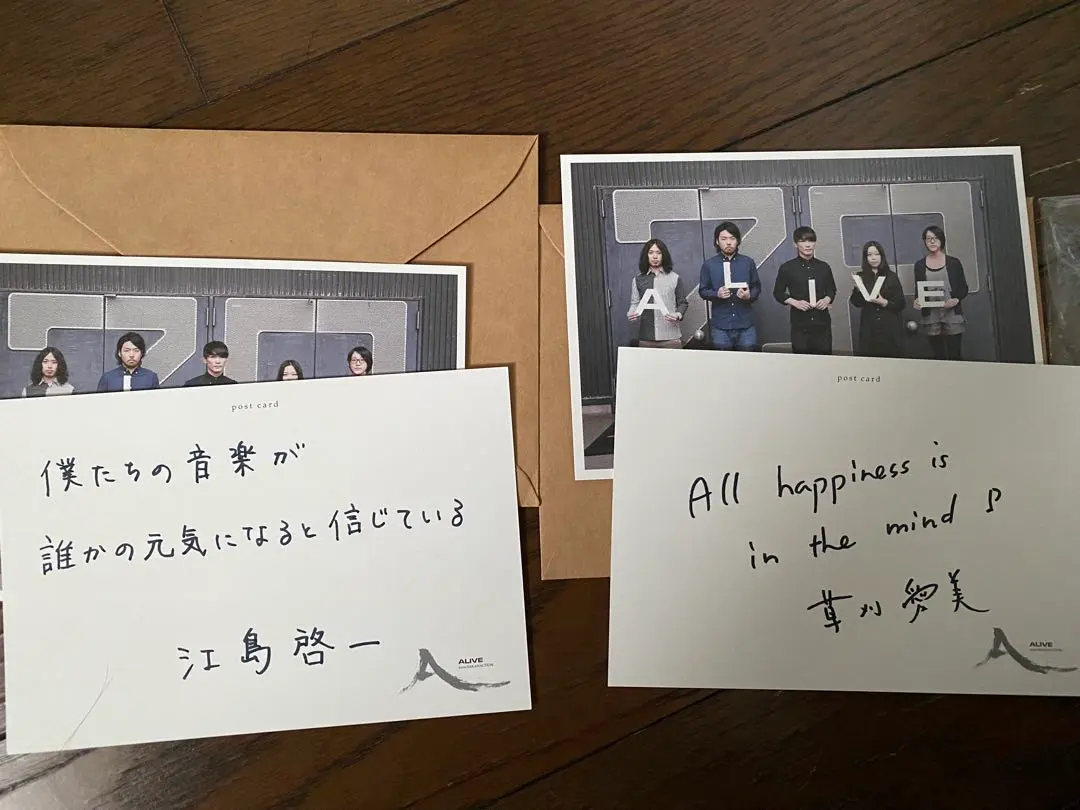 post card
僕たちの音楽が
誰かの元気になると信じている
江島啓一
A
ALIVE
from SAKANACTION
A L I V E
post card
All happiness is
in the mind ♪
草刈愛美
A
ALIVE
from SAKANACTION